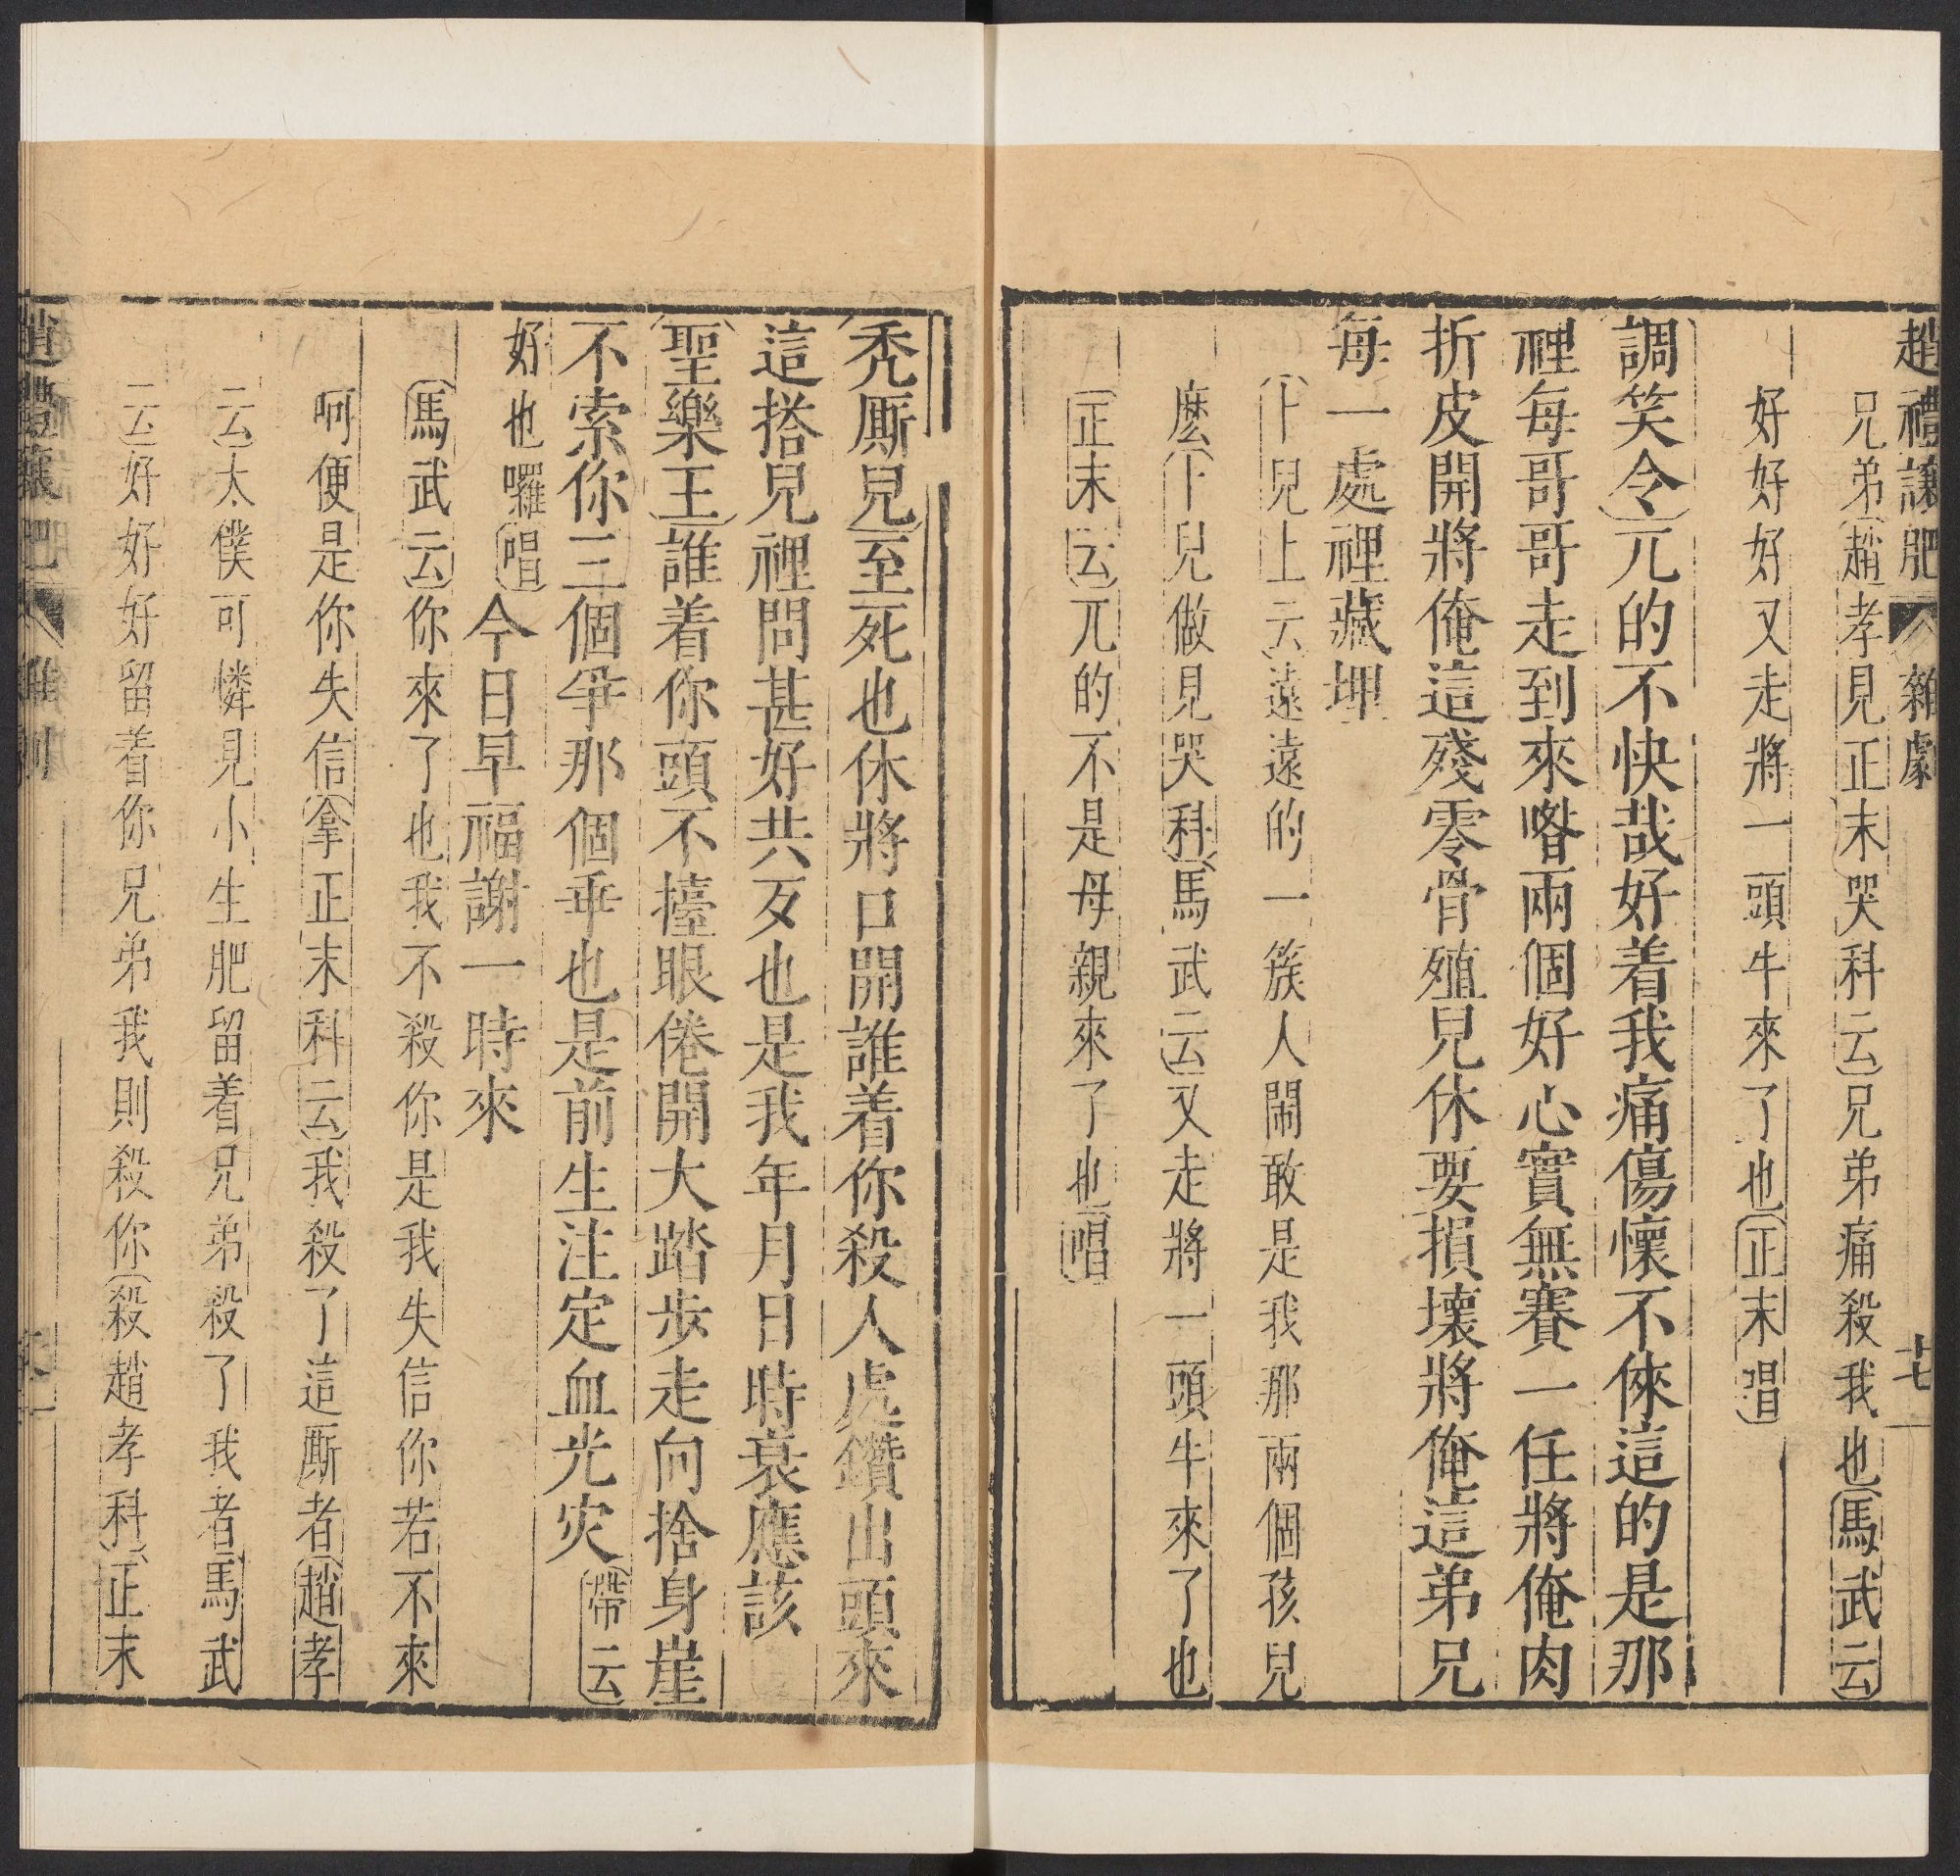 趙禮讓肥 雜劇 十七
兄弟趙孝見正末哭科云兄弟痛殺我也馬武云
好好好又走將一頭牛來了也正末唱
調笑令兀的不快哉好着我痛傷懷不倈這的是那
裡每哥哥走到來喒兩個好心實無賽一任將俺肉
折皮開將俺這殘零骨殖兒休要損壞將俺這弟兄
每一處裡藏埋
卜兒上云遠遠的一簇人鬧敢是我那兩個孩兒
麽卜兒做見哭科馬武云又走將一頭牛來了也
正末云兀的不是母親來了也唱
禿厮兒至死也休將口開誰着你殺人處鑽出頭來
這搭兒裡問甚好共歹也是我年月日時衰應該
聖樂王誰着你頭不擡眼倦開大踏步走向捨身崖
不索你三個爭那個乖也是前生注定血光灾帶云
好也囉唱今日早福謝一時來
馬武云你來了也我不殺你是我失信你若不來
呵便是你失信拿正末科云我殺了這厮者趙孝
云太僕可憐見小生肥留着兄弟殺了我者馬武
云好好好留着你兄弟我則殺你殺趙孝科正末
趙禮讓肥 雜劇